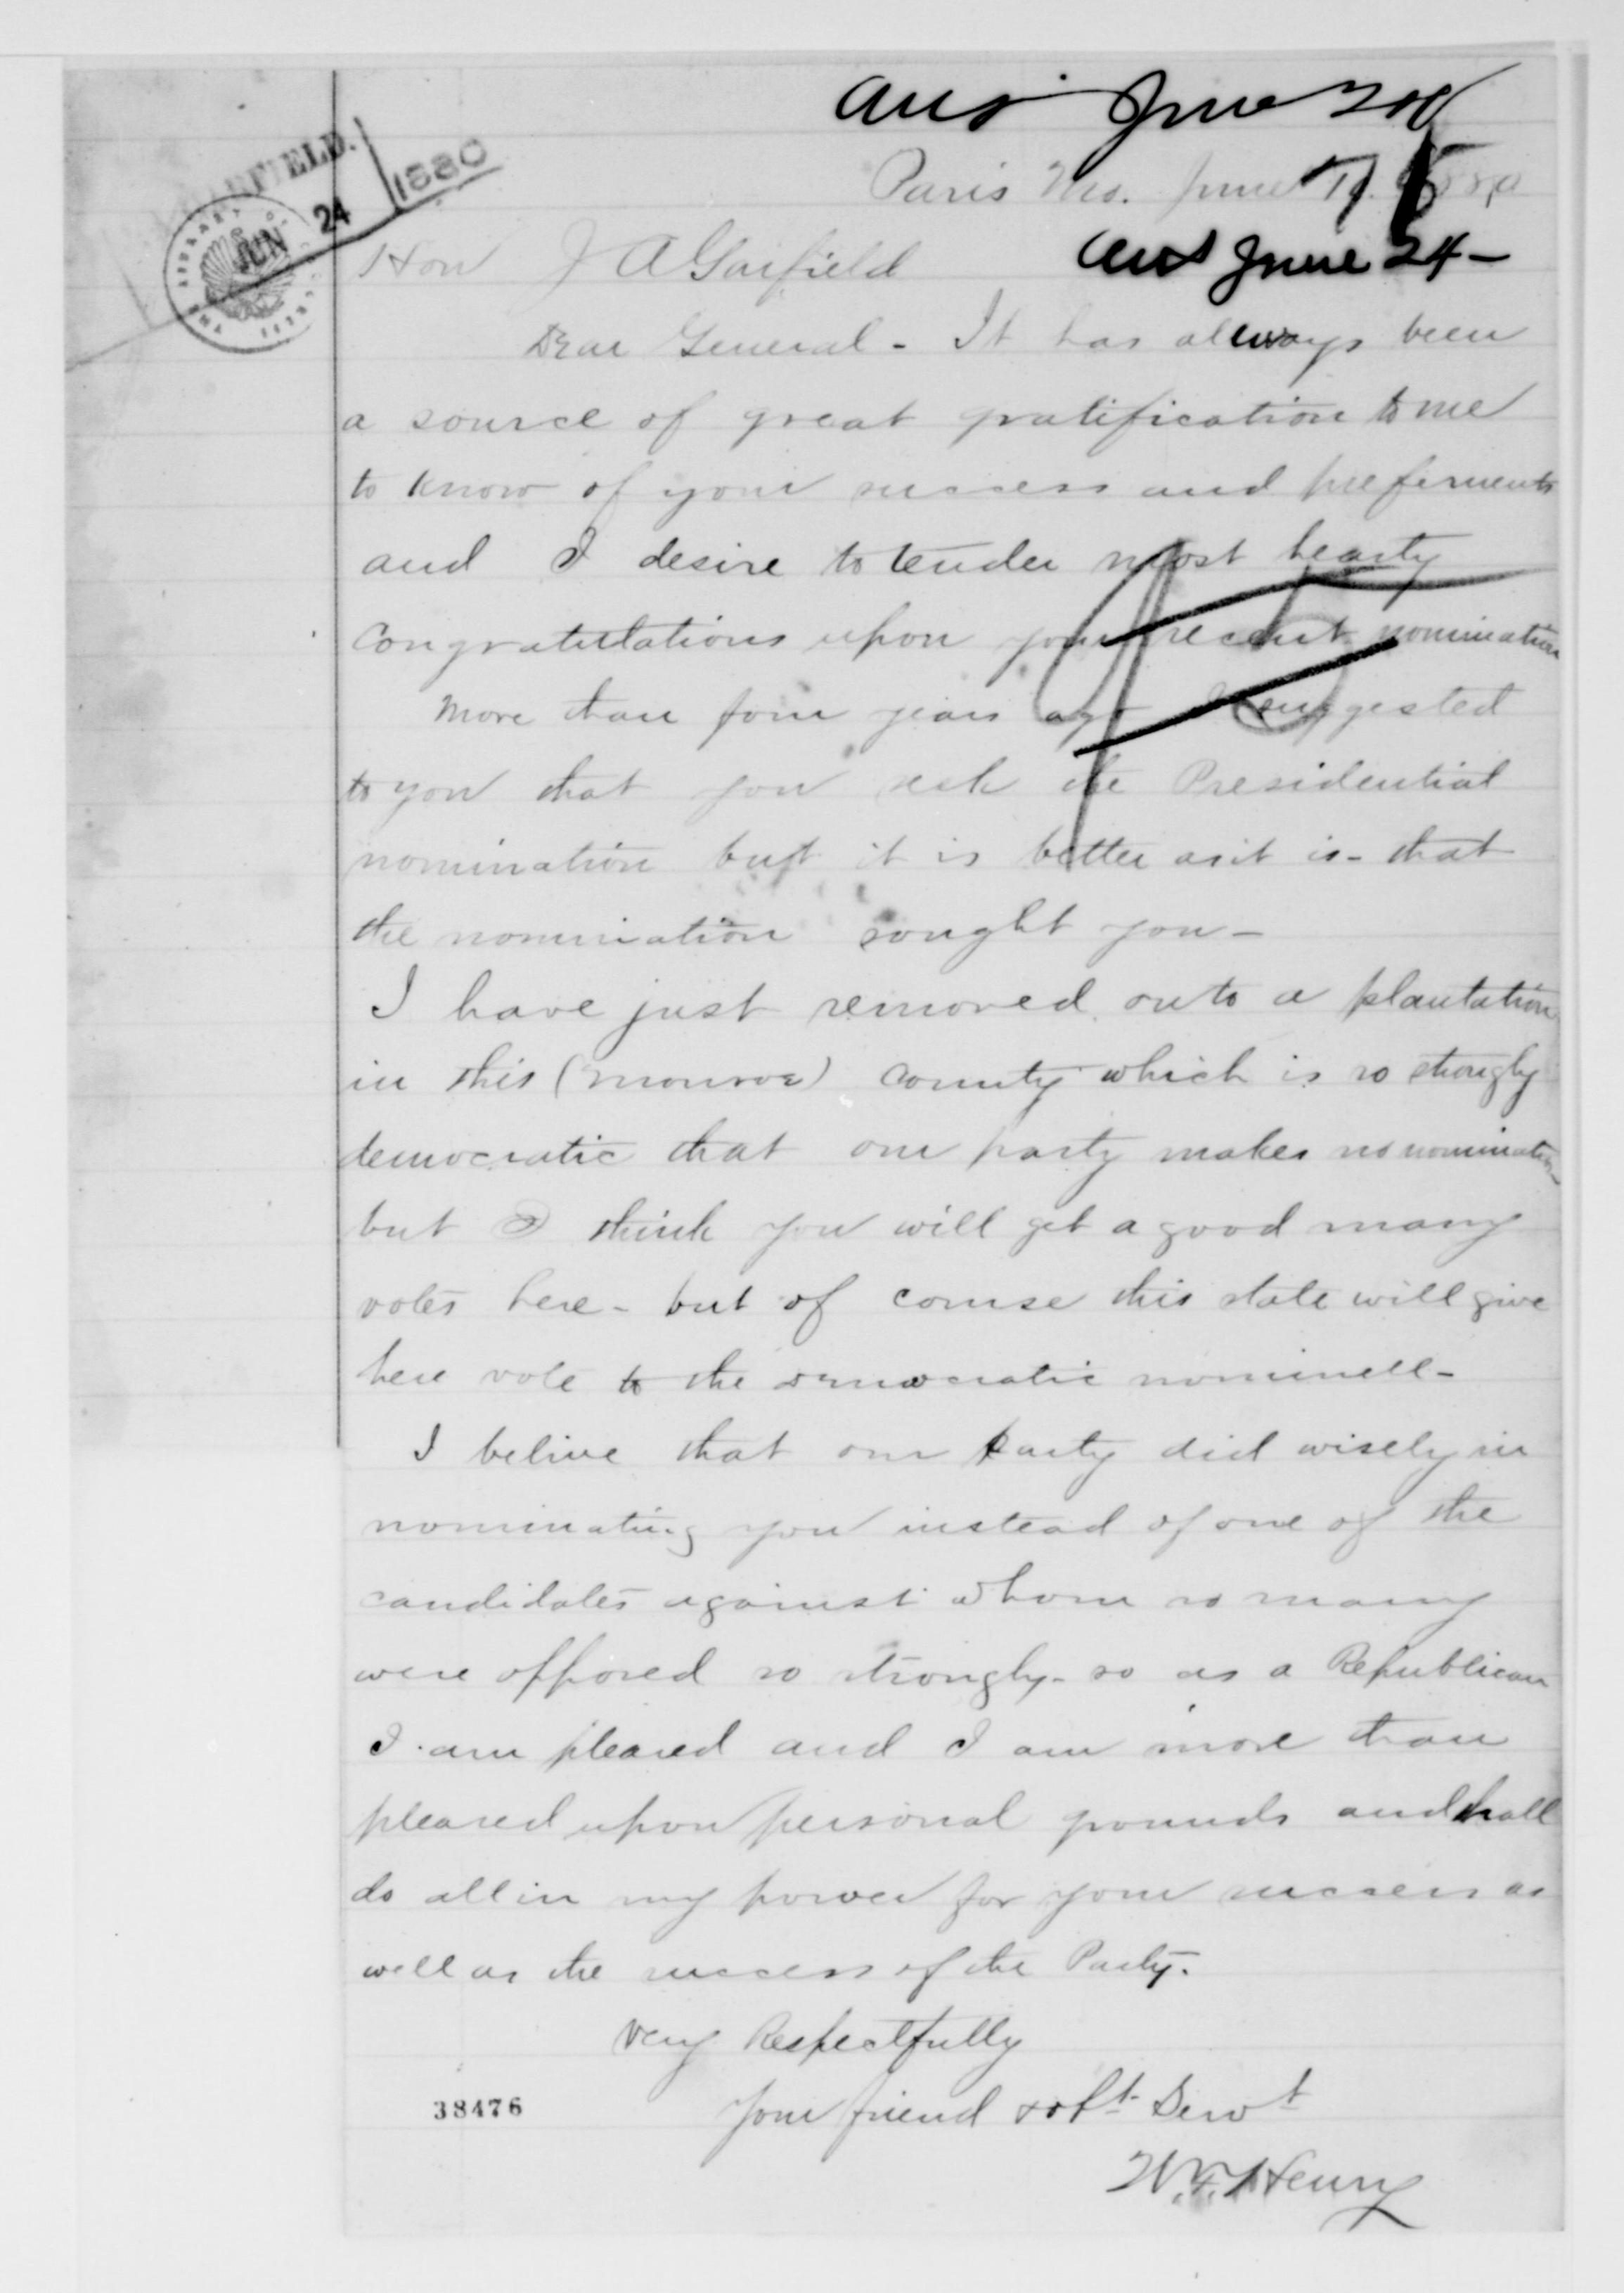 Ans June 24
Paris Mo. June 19. 1880
GARFIELD.
JUN 24 1880
Ans June 24-
Hon J A Garfield
Dear General - It has allways been
a source of great gratification to me
to know of your success and preferments
and I desire to tender most hearty
Congratulations upon your recent nomination
More than four years ago I suggested
to you that you seek the Presidential
nomination but it is better as it is - that
the nomination sought you-
I have just removed onto a plantation
in this (Monroe) County which is so strongly
democratic that our party makes no nomination
but I think you will get a good many
votes here - but of course this state will give
here vote to the democratic nominee-
I belive that our party did wisely in
nominating you instead of one of the
candidates against whom so many
were opposed so strongly - so as a Republican
I am pleased and I am more than
pleased upon personal grounds and shall
do all in my power for your success as
well as the success of the Party-
Very Respectfully
Your friend & obt Servt
W. F. Henry
38476